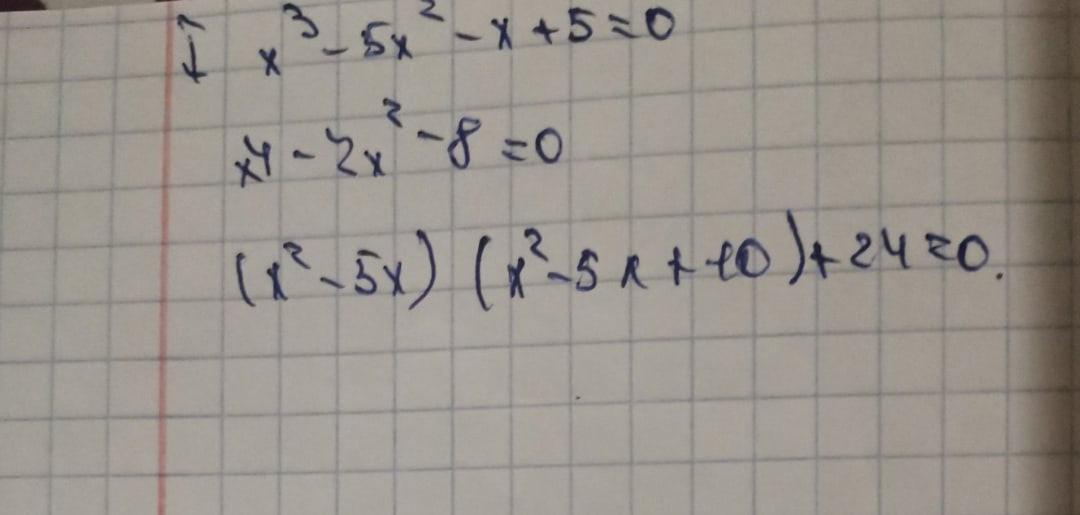 x³ - 5x² - x + 5 = 0
x⁴ - 2x² - 8 = 0
(x² - 5x) (x² - 5x + 10) + 24 = 0.